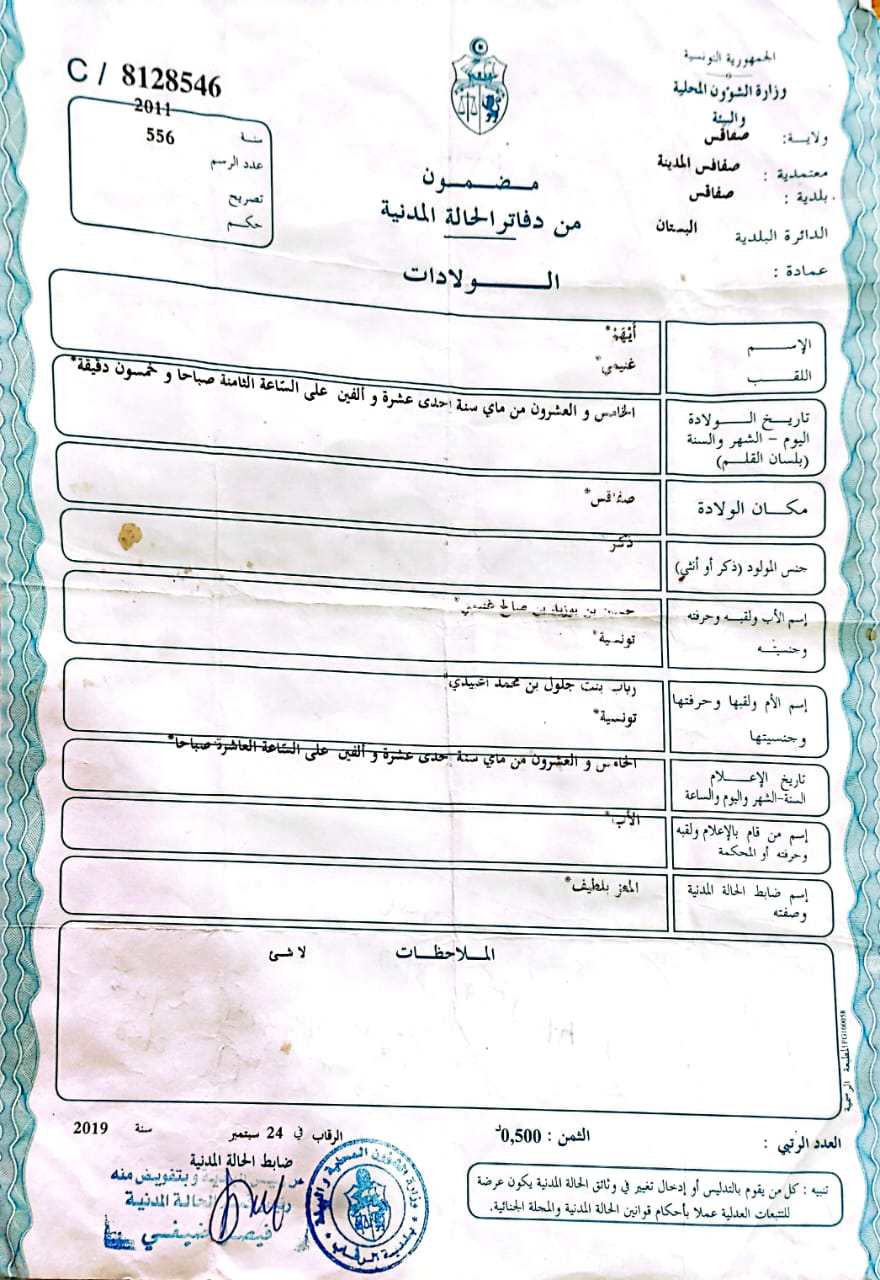 الجمهورية التونسية
وزارة الشؤون المحلية
والبيئة
ولاية: صفاقس
معتمدية : صفاقس المدينة
بلدية : صفاقس
الدائرة البلدية البستان
عمادة :
C / 8128546
سنة 2011
عدد الرسم 556
تصريح
حكم
مضمون
من دفاتر الحالة المدنية
الولادات
الإسم أَيْهَمْ*
اللقب غنيمي*
تاريخ الولادة
اليوم - الشهر والسنة
(بلسان القلم)
الخامس و العشرون من ماي سنة احدى عشرة و ألفين على السّاعة الثامنة صباحا و خمسون دقيقة*
مكان الولادة صفاقس*
جنس المولود (ذكر أو أنثى) ذكر
إسم الأب ولقبه وحرفته
وجنسيته
بن بوزيد بن صالح غنيمي*
تونسية*
إسم الأم ولقبها وحرفتها
وجنسيتها
رباب بنت جلول بن محمد
تونسية*
تاريخ الإعلام
السنة-الشهر واليوم والساعة
الخامس و العشرون من ماي سنة احدى عشرة و ألفين على السّاعة العاشرة صباحا*
إسم من قام بالإعلام ولقبه
وحرفته أو المحكمة
الأب*
إسم ضابط الحالة المدنية
وصفته
المعز بلطيف*
الملاحظات لا شئ
المطبعة الرسمية
العدد الرتبي :
الثمن : 0,500د
الرقاب في 24 سبتمبر سنة 2019
ضابط الحالة المدنية
وبتفويض منه
الحالة المدنية
وزارة الشؤون المحلية والبيئة
بلدية الرقاب
تنبيه : كل من يقوم بالتدليس أو إدخال تغيير في وثائق الحالة المدنية يكون عرضة
للتبعات العدلية عملا بأحكام قوانين الحالة المدنية والمجلة الجنائية.